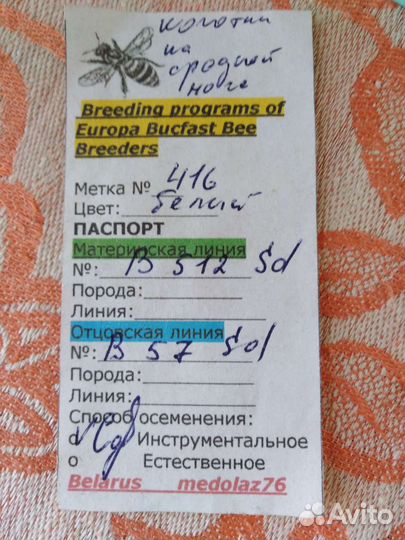 коготки
на
средней
ноге
Breeding programs of
Europa Bucfast Bee
Breeders
Метка № 416
Цвет: белый
ПАСПОРТ
Материнская линия
№: B 512 Sd
Порода:
Линия:
Отцовская линия
№: B 57 Sd
Порода:
Линия:
Способ осеменения:
о Инструментальное
о Естественное
Belarus medolaz76
Avito